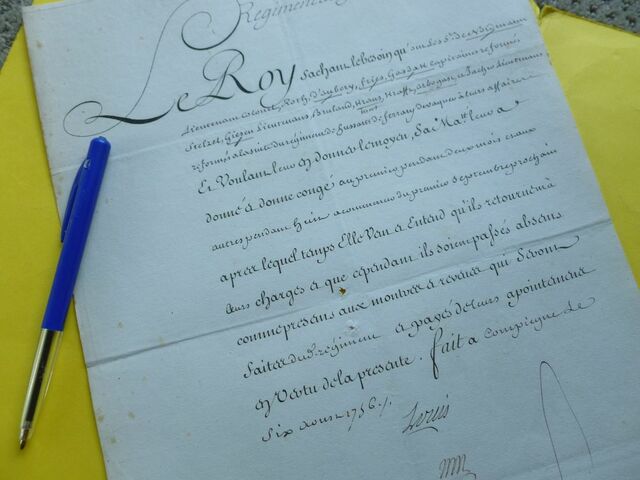 Regiment
LE ROY sachant le besoin qu'ont les Srs
Lieutenant Colonel, Roth, Daubery, Fries, Capitaines reformés
Lieutenans
reformés à la suite du régiment de hussards de ferrary de vaquer à leurs affaires
Et Voulant leur en donner le moyen, Sa Maté leur a
donné et donne congé au premier pendant deux mois et aux
autres pendant à commencer du premier Septembre prochain
apres lequel temps Elle Veut et Entend qu'ils retournent à
leurs charges et que cependant ils soient passés absens
comme presens aux montres et reveües qui Seront
faites dud. regiment et payés de leurs apointemens
en Vertu de la presente. fait a Compiegne le
Six aoust 1756./.
Louis